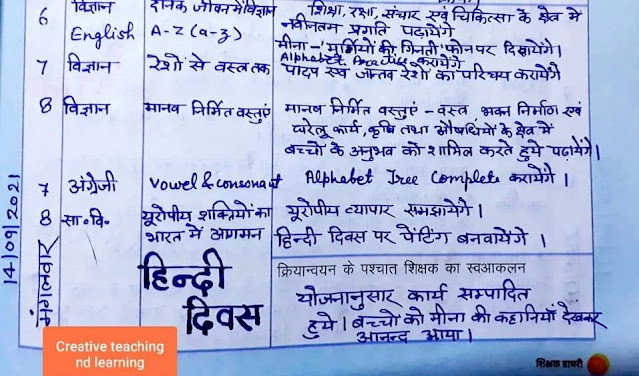 6 विज्ञान दैनिक जीवन में विज्ञान शिक्षा, रक्षा, संचार एवं चिकित्सा के क्षेत्र में
नवीनतम प्रगति पढ़ायेंगे
English A-Z (a-z) मीना - 'मुर्गियों की गिनती' फोन पर दिखायेंगे।
Alphabet Practice करायेंगे
7 विज्ञान रेशो से वस्त्र तक पादप एवं जांतव रेशों का परिचय करायेंगे
8 विज्ञान मानव निर्मित वस्तुएं मानव निर्मित वस्तुएं - वस्त्र भवन निर्माण एवं
घरेलू कार्य, कृषि तथा औषधियों के क्षेत्र में
बच्चों के अनुभव को शामिल करते हुये पढ़ायेंगे।
7 अंग्रेजी Vowel & consonant Alphabet Tree Complete करायेंगे।
8 सा.वि. यूरोपीय शक्तियों का यूरोपीय व्यापार समझायेंगे।
भारत में आगमन हिन्दी दिवस पर पेंटिंग बनवायेंगे।
14/09/2021
मंगलवार
हिन्दी
दिवस
क्रियान्वयन के पश्चात शिक्षक का स्वआकलन
योजनानुसार कार्य सम्पादित
हुये। बच्चों को मीना की कहानियाँ देखकर
आनन्द आया।
Creative teaching
nd learning
शिक्षक डायरी